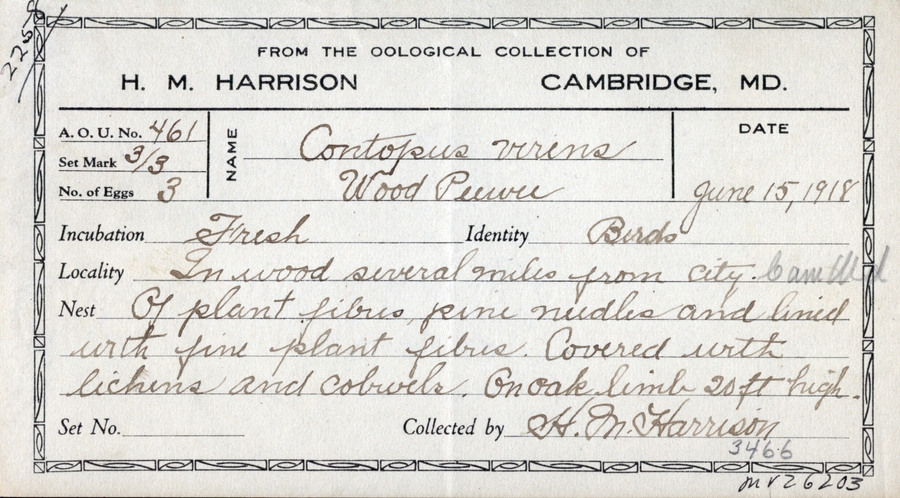 2258
FROM THE OOLOGICAL COLLECTION OF
H. M. HARRISON CAMBRIDGE, MD.
A. O. U. No. 461
Set Mark 3/3
No. of Eggs 3
NAME
Contopus virens
Wood Peewee
DATE
June 15, 1918
Incubation Fresh Identity Birds
Locality In wood several miles from city.
Nest Of plant fibres, pine needles and lined
with fine plant fibres. Covered with
lichens and cobwebs. On oak limb 20 ft high.
Set No. Collected by H. M. Harrison
3466
MV26203